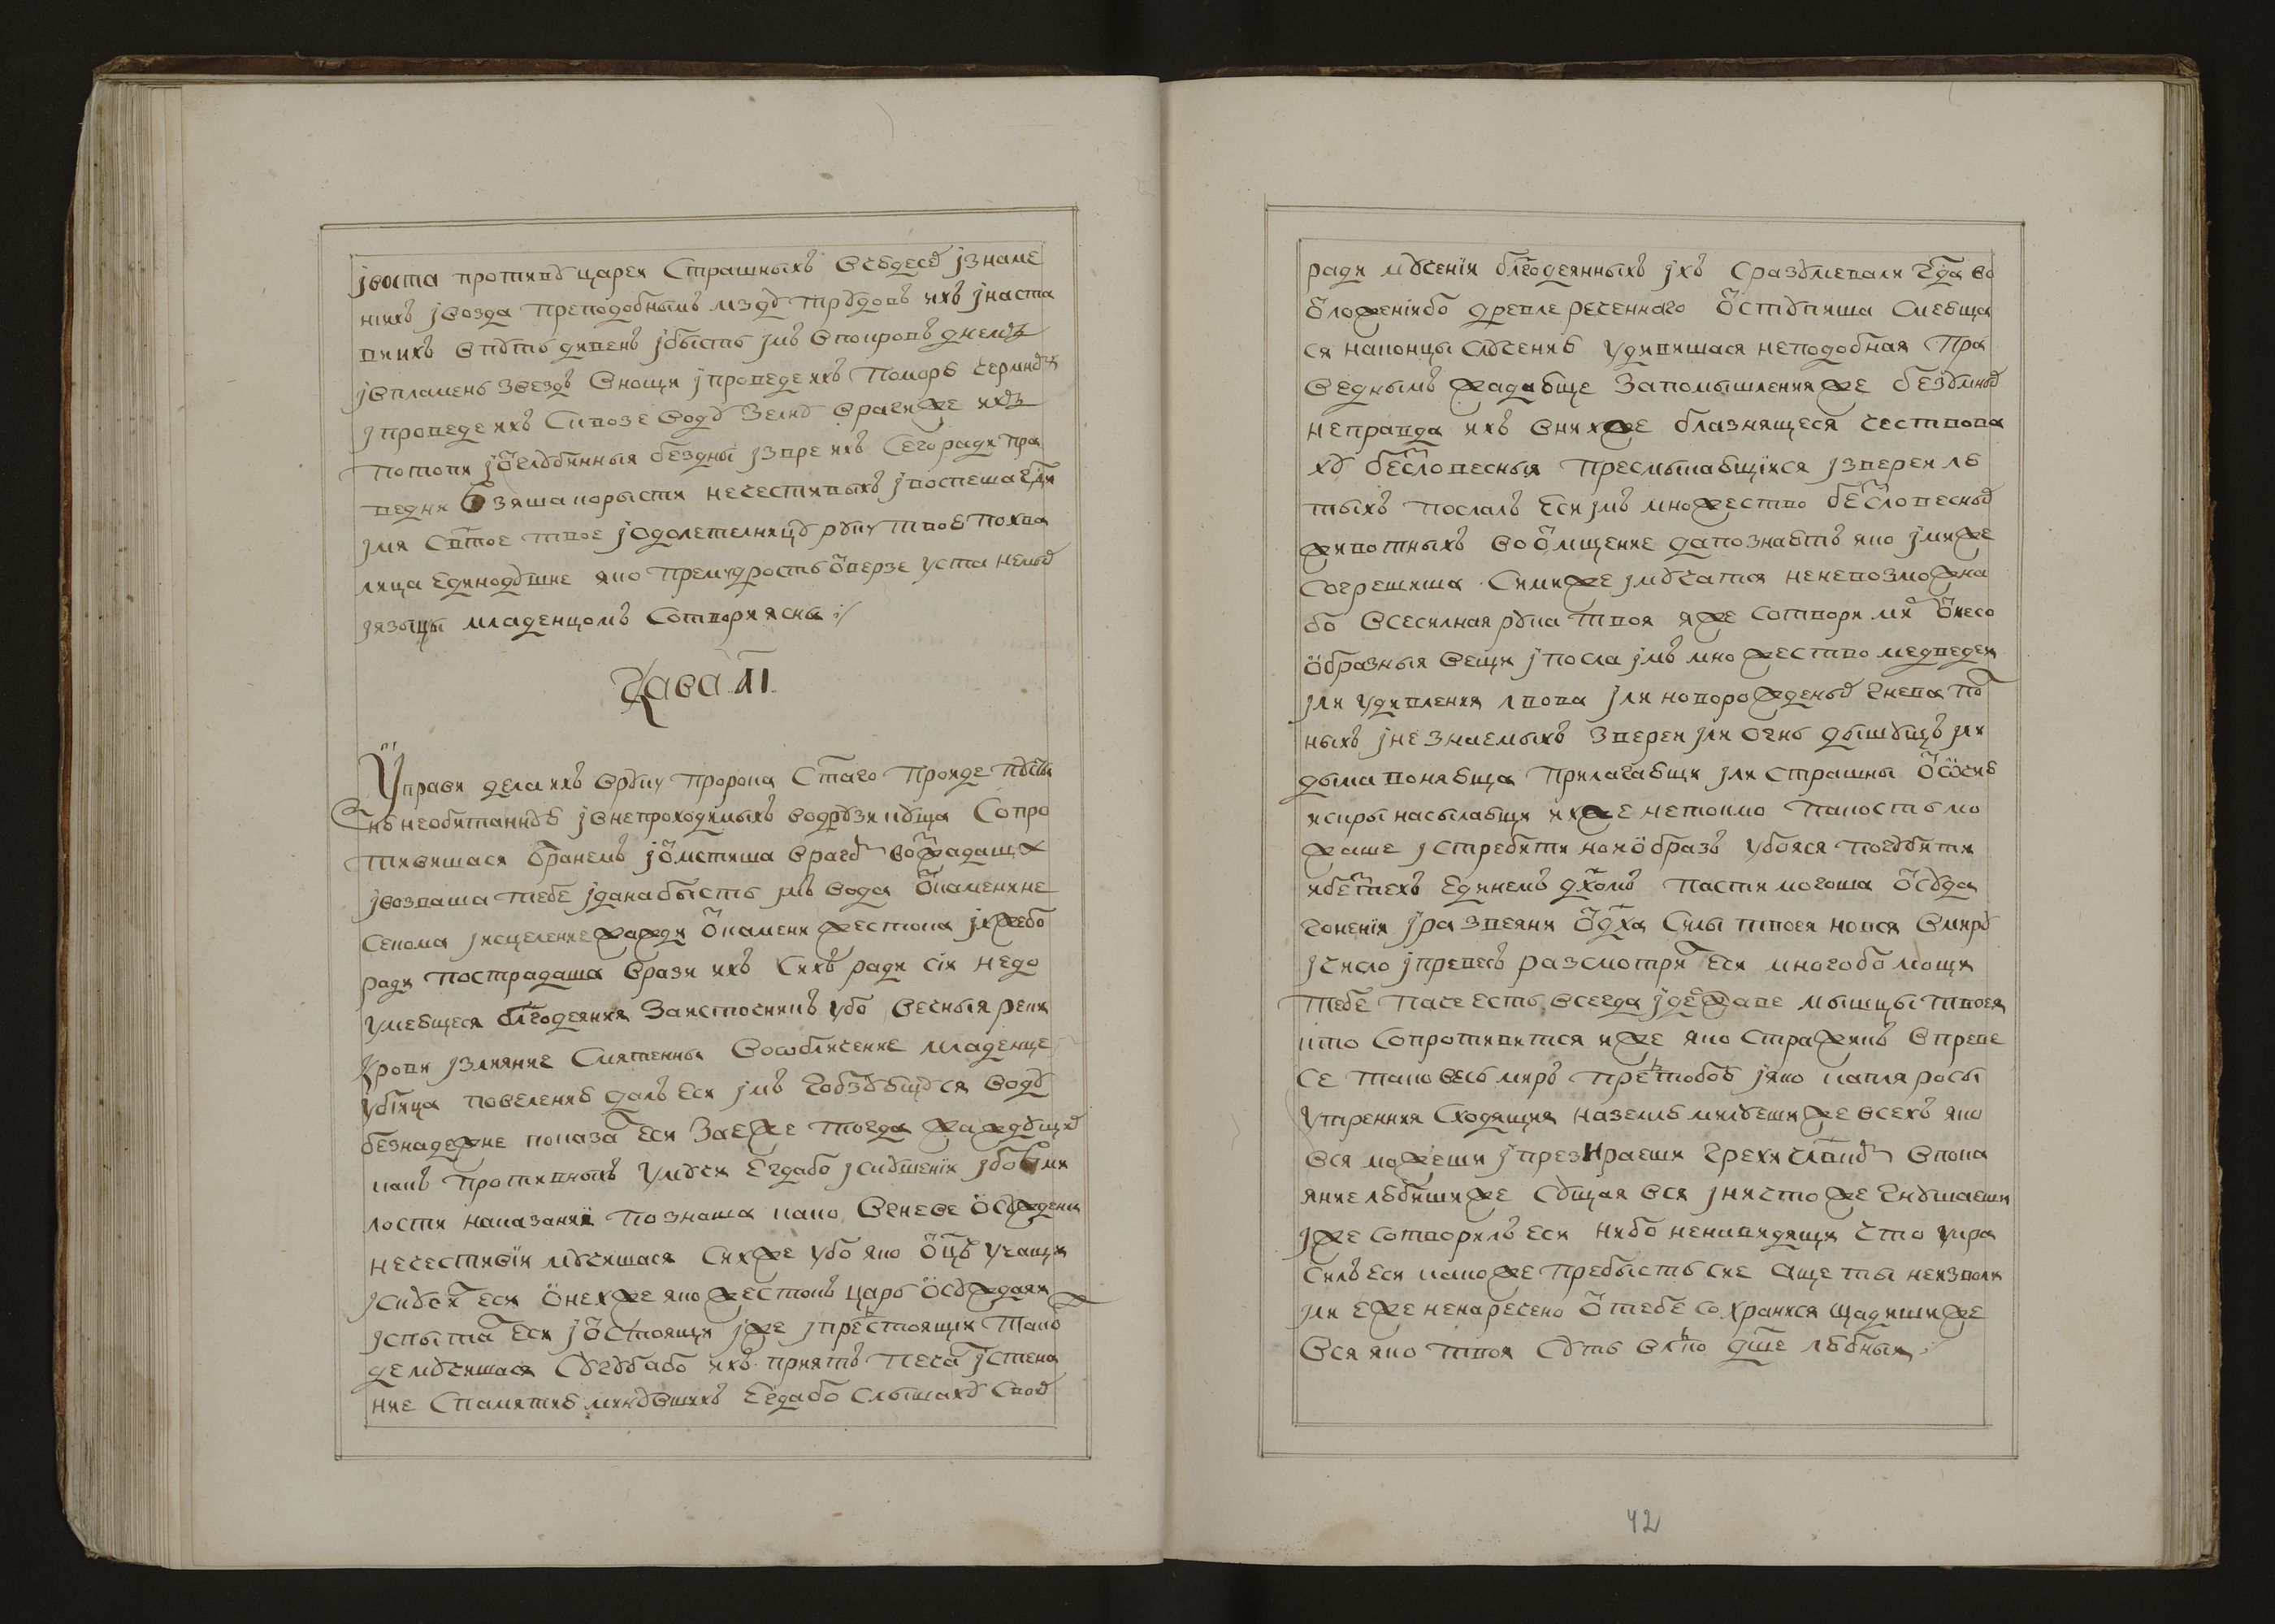 јвоста противꙋ царей страшныхъ вчюдесѣ јзнаме
ниихъ јвозда преподобнымъ мздꙋ трꙋдовъ ихъ јнаста
ви ихъ впꙋть дивенъ јбысть јмъ впокровъ днемъ
јвпламень звездъ внощи јпроведе ихъ поморю чермнꙋ
јпроведе ихъ сквозе водꙋ зелнꙋ врагиже ихъ
потопи јѿглꙋбинныя бездны јзвре ихъ сегоради пра
ведни взяша корысти нечестивыхъ јвоспеша гди
јмя свтое твое јодолетелницꙋ рꙋкꙋ твою похва
лиша единодꙋшне яко премꙋдрость ѿверзе уста немы
јязыцы младенцомъ сотвори ясны
Глава АІ
Ꙋправи дела ихъ врꙋкꙋ пророка стаго проиде пꙋсты
ню необитаннꙋю јвнепроходимыхъ водрꙋзи кꙋща сопро
тивишася бранемъ јѿмстиша врагꙋ вожадаша
јвозваша тебе јдана бысть јмъ вода ѿкамени не
секома јисцеление жажди ѿкамени жестока јхжебо
ради пострадаша врази ихъ сихъ ради сіи недо
умеющеся блгодеяния заисточникъ убо вечныя реки
крови јзлияние смятенны вообличение младенце
убійца повелению далъ еси јмъ гобзꙋющꙋся водꙋ
безнадежне показа еси заеже тогда жаждꙋщꙋ
какъ противныхъ умꙋчи егдабо јскꙋшени јбо вми
лости наказаний познаша како вгневе ѡсꙋждени
нечестивіи мꙋчишася сихже убо яко ѿцъ учащи
јскꙋси еси ѻнехже яко жестокъ царь ѡсꙋждаяи
јспыта еси јѿстоящи јже јпредстоящи тако
де мꙋчишася сꙋгꙋбабо ихъ прията печа јстена
ние спамятию минꙋвшихъ егдабо слышахꙋ свои
ради мꙋчении блгодеянныхъ јхъ сразꙋмевали гда во
ѿложениибо древле реченнаго ѿстꙋпиша смеюща
ся наконцы слꙋчению удивишася неподобная пра
ведныхъ жадающе запомышленияже безꙋмны
неправда ихъ внихже блазнящеся чествова
хꙋ бесловесныя пресмыкающихся јзверей лю
тыхъ послалъ еси јмъ множество бесловесны
животныхъ воѿмщение дапознаютъ яко јмиже
согрешиша симиже јмꙋчатся неневозможна
бо всесилная рꙋка твоя яже сотвори ми ѿнесо
ѡбразныя вещи јпосла јмъ множество медведей
јли удивления лвова јли новорожденны гнева по
ныхъ јнезнаемыхъ зверей јли огнь дышꙋщъ јли
дыма вонюща прилагающи јли страшны ѿѡчию
искры насылающи ихже нетокмо пакость мо
жаше јстребити нои ѡбразъ убояся погꙋбити
ибетехъ единемъ дхомъ пасти могоша ѿсꙋда
гонении јразвеяни ѿдха силы твоея новся вмирꙋ
јчисло јпревесъ разсмотри еси многобо мощи
тебе паче есть всегда јдержаве мышцы твоея
кто сопротивится иже яко стражикъ вpреве
се тако весь миръ предтобою јяко капля росы
утренния сходящия наземлю милꙋешиже всехъ яко
вся можеши јпрезираеши грехи члвкꙋ впока
яние любишиже сꙋщая вся јничтоже гнꙋшаеши
јже сотворилъ еси нибо ненавидящи что укра
силъ еси какоже пребысть сие аще ты неизволи
јли еже ненаречено ѿтебе сохранися щадишиже
вся яко твоя сꙋть влко дше любный
42